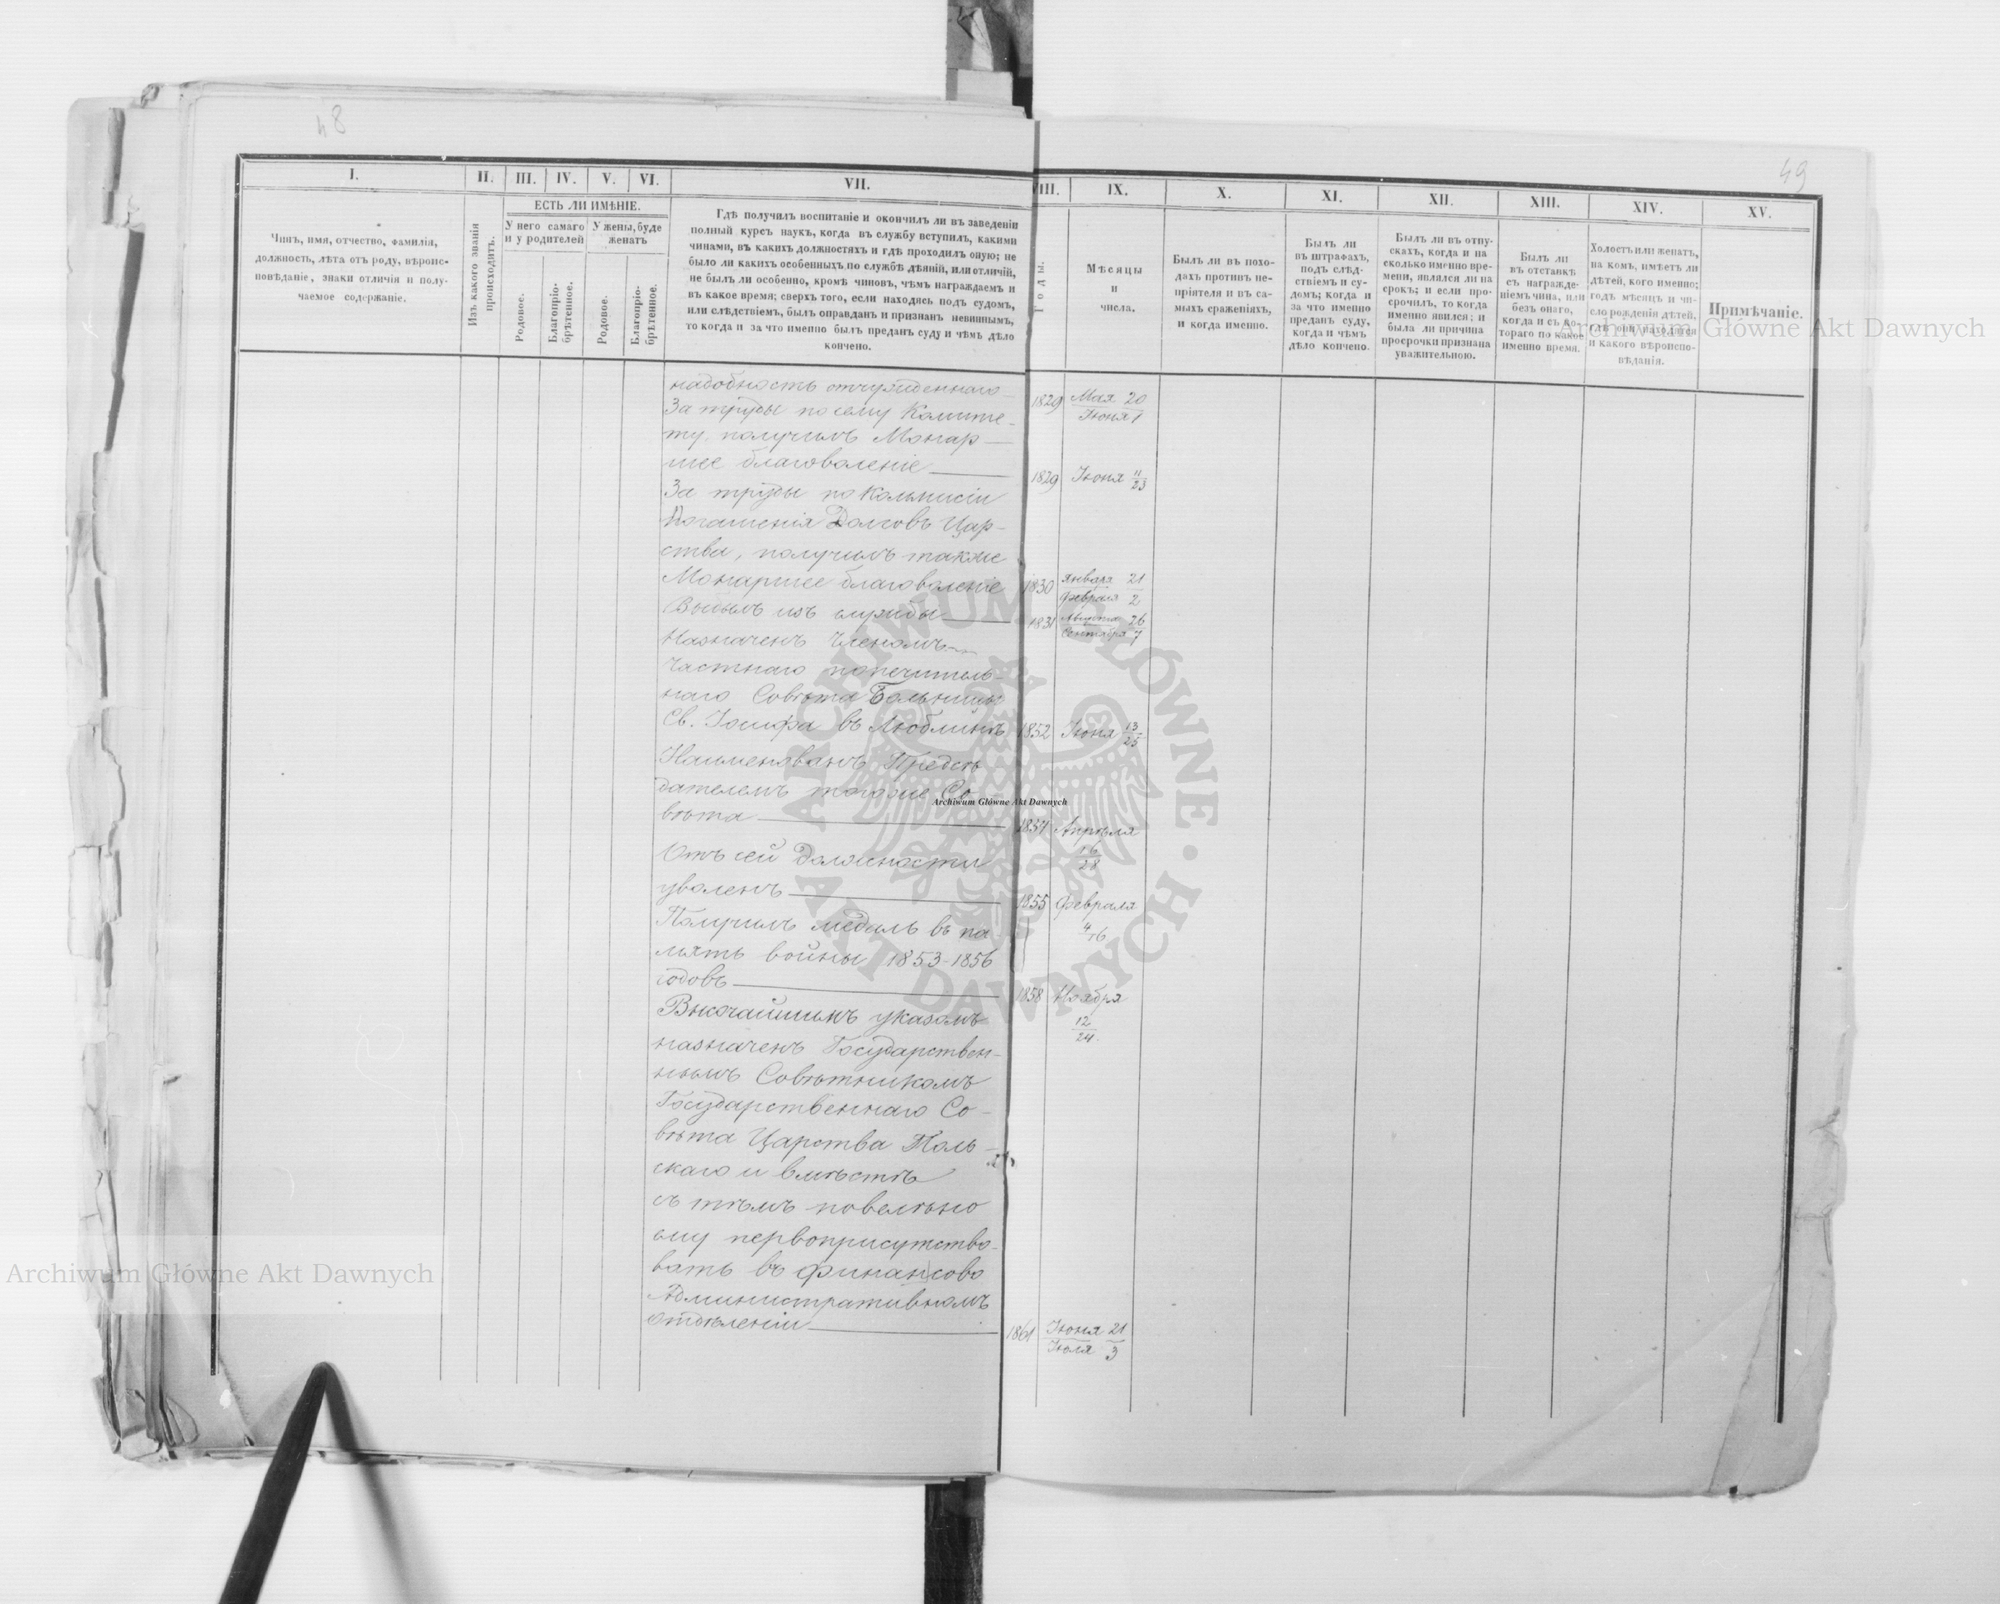 48
49
I.
II.
III.
IV.
V.
VI.
VII.
VIII.
IX.
X.
XI.
XII.
XIII.
XIV.
XV.
Чинъ, имя, отчество, фамилія,
должность, лѣта отъ роду, вѣроис-
повѣданіе, знаки отличія и полу-
чаемое содержаніе.
Изъ какого званія
происходитъ.
ЕСТЬ ЛИ ИМѢНІЕ.
У него самаго
и у родителей
У жены, буде
женатъ
Родовое.
Благопріо-
брѣтенное.
Родовое.
Благопріо-
брѣтенное.
Гдѣ получилъ воспитаніе и окончилъ ли въ заведеніи
полный курсъ наукъ, когда въ службу вступилъ, какими
чинами, въ какихъ должностяхъ и гдѣ проходилъ оную; не
было ли какихъ особенныхъ по службѣ дѣяній, или отличій,
не былъ ли особенно, кромѣ чиновъ, чѣмъ награждаемъ и
въ какое время; сверхъ того, если находясь подъ судомъ,
или слѣдствіемъ, былъ оправданъ и признанъ невиннымъ,
то когда и за что именно былъ преданъ суду и чѣмъ дѣло
кончено.
Годы.
Мѣсяцы
и
числа.
Былъ ли въ похо-
дахъ противъ не-
пріятеля и въ са-
мыхъ сраженіяхъ,
и когда именно.
Былъ ли
въ штрафахъ,
подъ слѣд-
ствіемъ и су-
домъ; когда и
за что именно
преданъ суду,
когда и чѣмъ
дѣло кончено.
Былъ ли въ отпу-
скахъ, когда и на
сколько именно вре-
мени, являлся ли на
срокъ; и если про-
срочилъ, то когда
именно явился; и
была ли причина
просрочки признана
уважительною.
Былъ ли
въ отставкѣ
съ награжде-
ніемъ чина, или
безъ онаго,
когда и съ ко-
тораго по какое
именно время.
Холостъ или женатъ,
на комъ, имѣетъ ли
дѣтей, кого именно;
годъ мѣсяцъ и чи-
сло рожденія дѣтей,
гдѣ они находятся
и какого вѣроиспо-
вѣданія.
Примѣчаніе.
надобность отчужденнаго 1829 Мая 20
За труды по сему Комите- Іюня 1
ту, получилъ Монар-
шее благоволеніе 1829 Іюня 11/23
За труды по Коммисіи
Погашенія Долговъ Цар-
ства, получилъ также
Монаршее благоволеніе 1830 Января 21 Февраля 2
Выбылъ изъ службы 1831 Августа 26 Сентября 7
Назначенъ Членомъ
Частнаго попечитель-
наго Совѣта Больницы
Св. Іосифа въ Люблинѣ 1852 Іюня 13/25
Наименованъ Предсѣ
дателемъ тогоже Со-
вѣта 1854 Апрѣля
16/28
Отъ сей должности
уволенъ 1855 Февраля
4/16
Получилъ медаль въ па-
мять войны 1853-1856
годовъ 1858 Ноября
12/24.
Высочайшимъ указомъ
назначенъ Государствен-
нымъ Совѣтникомъ
Государственнаго Со-
вѣта Царства Поль-
скаго и вмѣстѣ
съ тѣмъ повелѣно
ему первоприсутство-
вать въ Финансово
Административномъ
Отдѣленіи 1861 Іюня 21 Іюля 3
Archiwum Główne Akt Dawnych
Archiwum Główne Akt Dawnych
Archiwum Główne Akt Dawnych
ARCHIWUM GŁÓWNE · AKT DAWNYCH ·